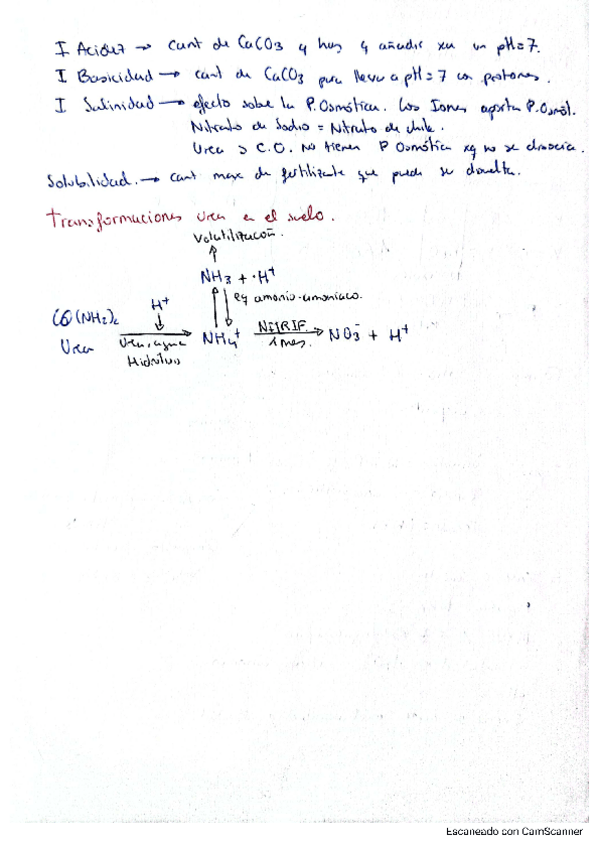 I Acidez → cant de CaCO3 q hay q añadir xa un pH=7.
I Basicidad → cant de CaCO3 para llevar a pH=7 con protones.
I Salinidad → efecto sobre la P.Osmótica. Los Iones aportan P.Osmót.
Nitrato de Sodio = Nitrato de chile.
Urea C.O. No tienen P Osmótica xq no se disocia.
Solubilidad. → cant max de fertilizante que puede ser disuelta.
Transformaciones Urea en el suelo.
Volatilización.
NH3 + H+
eq amonio-amoniaco.
H+
CO(NH2)2 NH4+ NITRIF. NO3- + H+
Urea 1 mes.
Hidrólisis
Escaneado con CamScanner